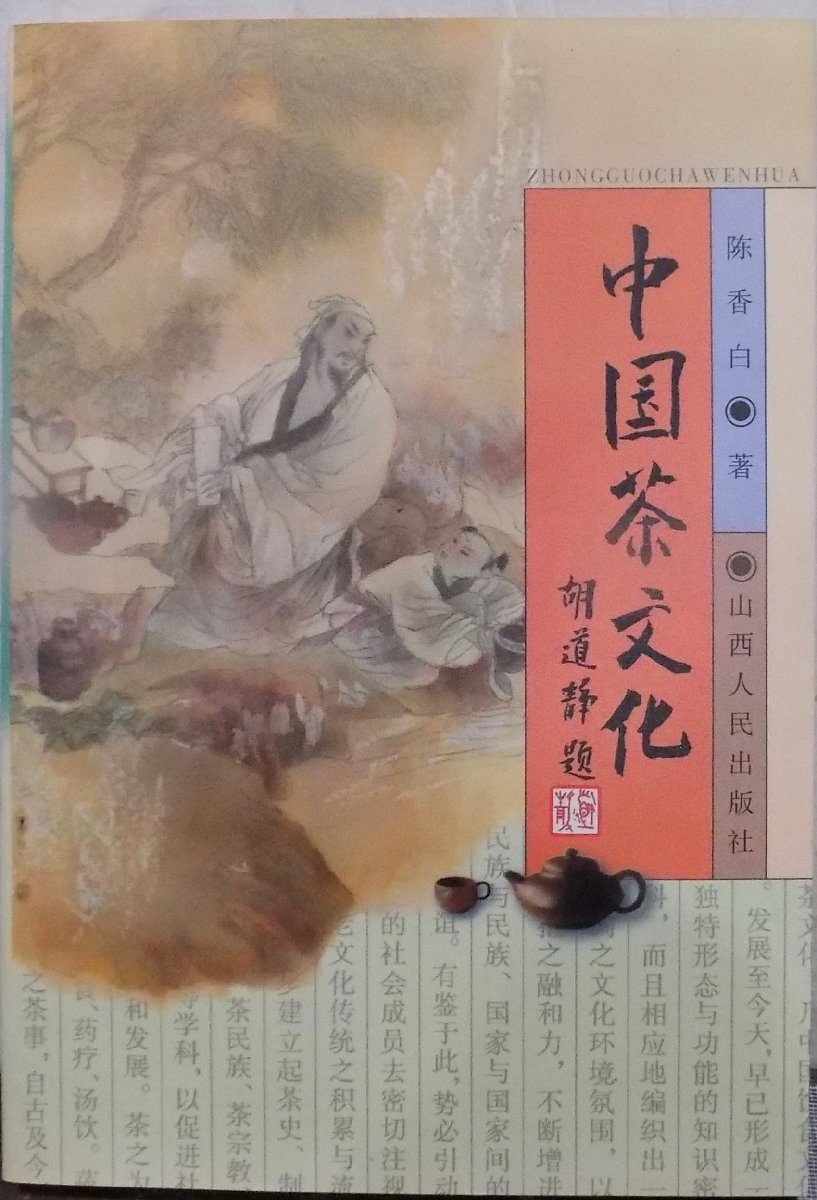 ZHONGGUOCHAWENHUA
中国茶文化
胡道静题
陈香白 著
山西人民出版社
发展至今天,早已形成一
独特形态与功能的知识密
而且相应地编织出一
之文化环境氛围,以
之融和力,不断增进
民族与民族、国家与国家间的
。有鉴于此,势必引动
的社会成员去密切注视
文化传统之积累与流
建立起茶史、制
茶民族、茶宗教
学科,以促进社
和发展。茶之为
、药疗、汤饮。
之茶事,自古及今